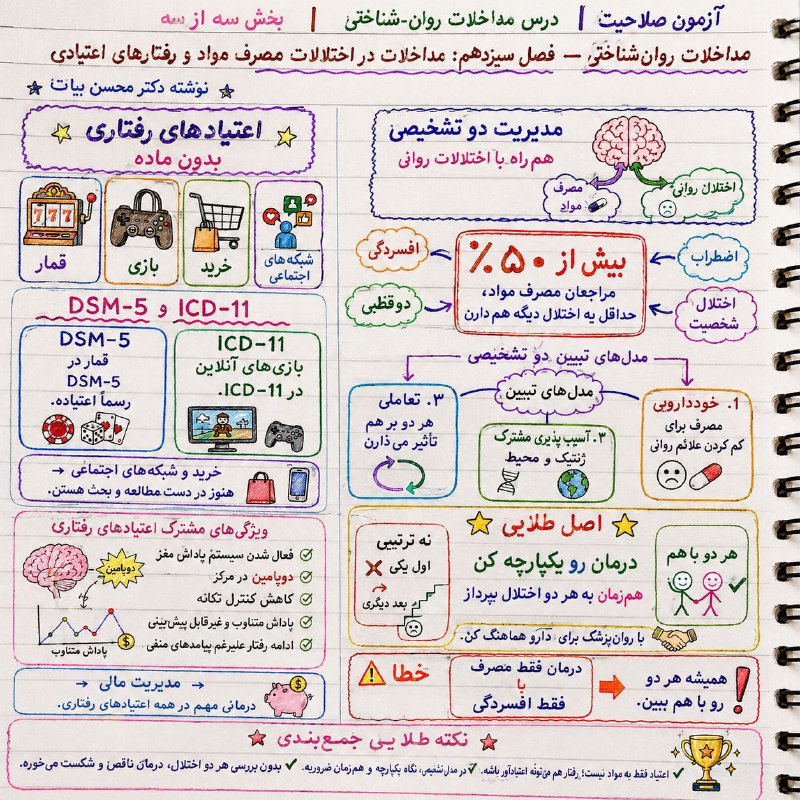 آزمون صلاحیت | درس مداخلات روان-شناختی | بخش سه از سه
مداخلات روان‌شناختی — فصل سیزدهم: مداخلات در اختلالات مصرف مواد و رفتارهای اعتیادی
نوشته دکتر محسن بیات
مدیریت دو تشخیصی
هم راه با اختلالات روانی
مصرف مواد
اختلال روانی
بیش از ۵۰٪
مراجعان مصرف مواد،
حداقل یه اختلال دیگه هم دارن
افسردگی
دوقطبی
اضطراب
اختلال شخصیت
مدل‌های تبیین دو تشخیصی
مدل‌های تبیین
1. خوددارویی
مصرف برای
کم کردن علائم روانی
۳. آسیب پذیری مشترک
ژنتیک و محیط
۳. تعاملی
هر دو بر هم
تأثیر می‌ذارن
اصل طلایی
درمان رو یکپارچه کن
هم‌زمان به هر دو اختلال بپرداز
با روان‌پزشک برای دارو هماهنگ کن.
هر دو با هم
نه ترتیبی
اول یکی
بعد دیگری
همیشه هر دو
رو با هم ببین.
درمان فقط مصرف
یا
فقط افسردگی
خطا
اعتیادهای رفتاری
بدون ماده
قمار
بازی
خرید
شبکه‌های
اجتماعی
ICD-11 و DSM-5
DSM-5
قمار در
DSM-5
رسماً اعتیاده.
ICD-11
بازی‌های آنلاین
در ICD-11.
خرید و شبکه‌های اجتماعی →
هنوز در دست مطالعه و بحث هستن.
ویژگی‌های مشترک اعتیادهای رفتاری
فعال شدن سیستم پاداش مغز
دوپامین در مرکز
کاهش کنترل تکانه
پاداش متناوب و غیرقابل پیش‌بینی
ادامه رفتار علیرغم پیامدهای منفی
دوپامین
پاداش متناوب
→ مدیریت مالی →
درمانی مهم در همه اعتیادهای رفتاری.
نکته طلایی جمع‌بندی
✓ اعتیاد فقط به مواد نیست؛ رفتار هم می‌تونه اعتیادآور باشه. ✓ در مدل تشخیص، نگاه یکپارچه و هم‌زمان ضروریه. ✓ بدون بررسی هر دو اختلال، درمان ناقص و شکست می‌خوره.